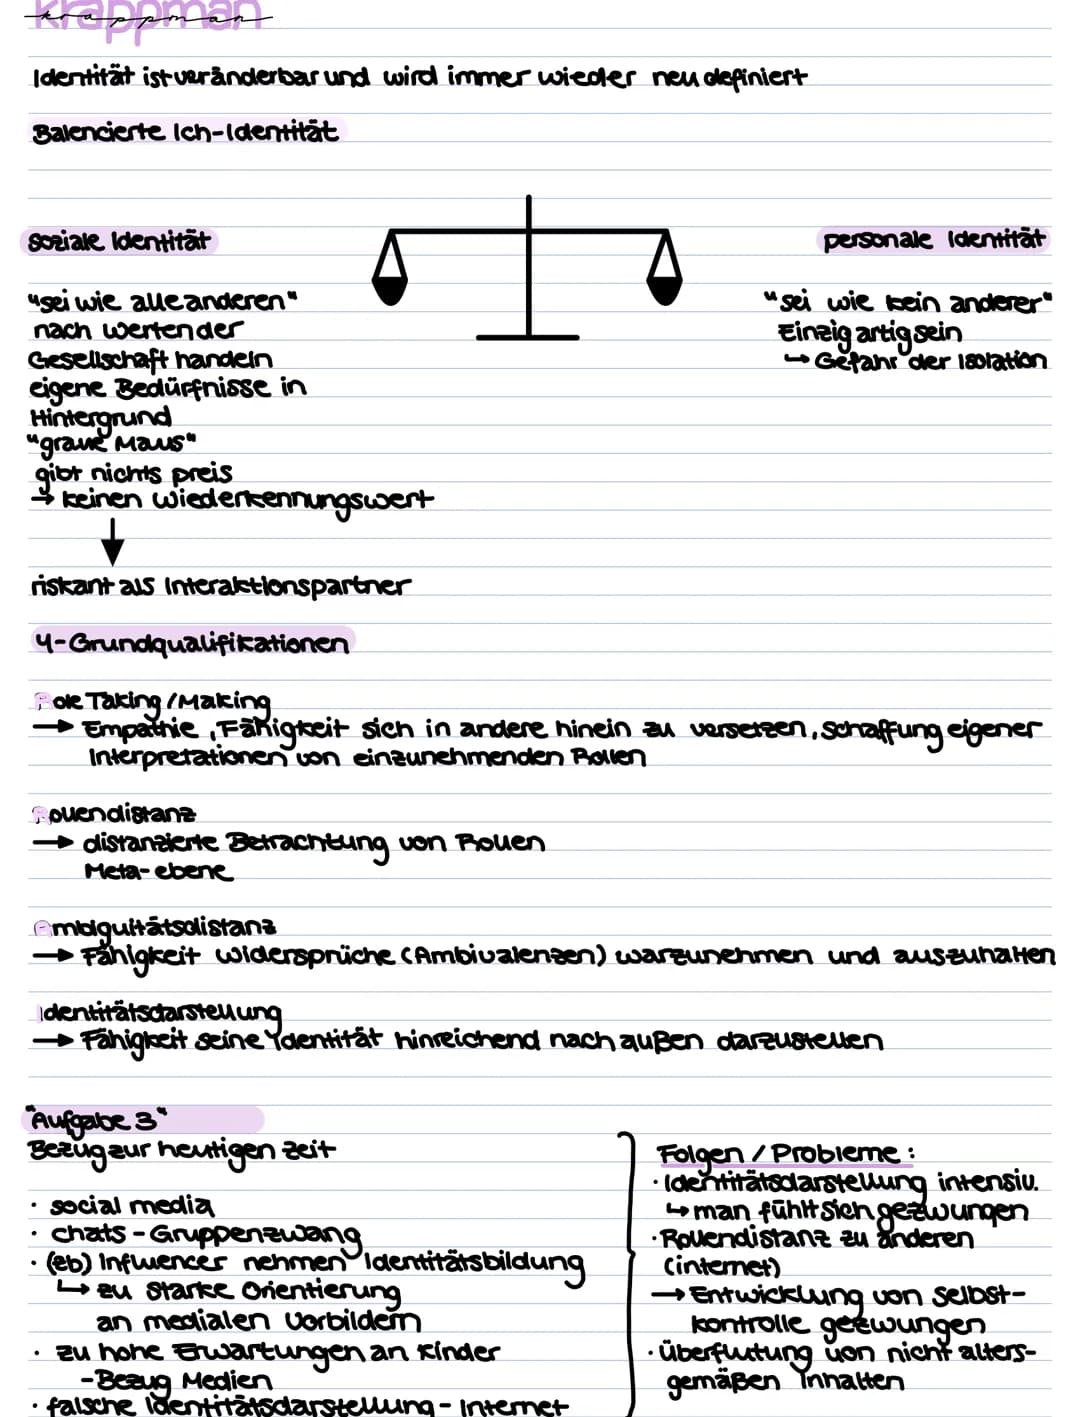 krappman
krappman
Identität ist veränderbar und wird immer wieder neu definiert
Balencierte Ich-Identität
soziale Identität
personale Identität
"sei wie alle anderen"
nach werten der
Gesellschaft handeln
eigene Bedürfnisse in
Hintergrund
"graue Maus"
gibt nichts preis
→ keinen wiederkennungswert
"sei wie kein anderer"
Einzigartig sein
↳ Gefahr der Isolation
riskant als Interaktionspartner
4-Grundqualifikationen
Role Taking / Making
→ Empathie, Fähigkeit sich in andere hinein zu versetzen, schaffung eigener
Interpretationen von einzunehmenden Rollen
Rollendistanz
→ distanzierte Betrachtung von Rollen
Meta-ebene
Ambiguitätsdistanz
→ Fähigkeit widersprüche (Ambivalenzen) warzunehmen und auszuhalten
Identitätsdarstellung
→ Fähigkeit seine Identität hinreichend nach außen darzustellen
"Aufgabe 3"
Bezug zur heutigen zeit
· social media
· chats - Gruppenzwang
· (eb) Influencer nehmen Identitätsbildung
↳ zu starke Orientierung
an medialen Vorbildern
· zu hohe Erwartungen an Kinder
- Bezug Medien
· falsche Identitätsdarstellung - Internet
Folgen / Probleme :
· Identitätsdarstellung intensiv.
↳ man fühlt sich gezwungen
· Rollendistanz zu anderen
(internet)
→ Entwicklung von selbst-
kontrolle gezwungen
· überflutung von nicht alters-
gemäßen Inhalten